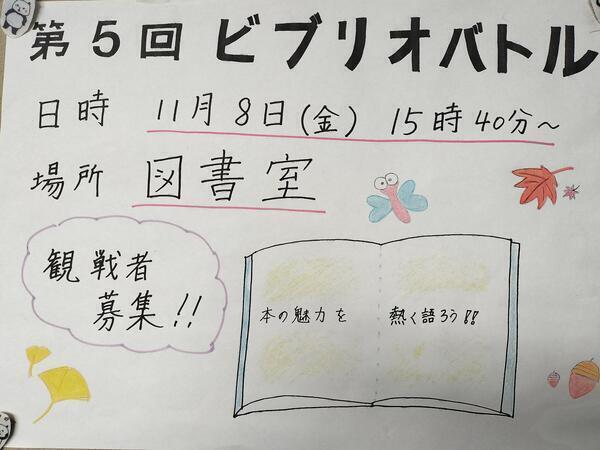 第5回 ビブリオバトル
日時 11月8日(金) 15時40分~
場所 図書室
観戦者
募集!!
本の魅力を 熱く語ろう!!